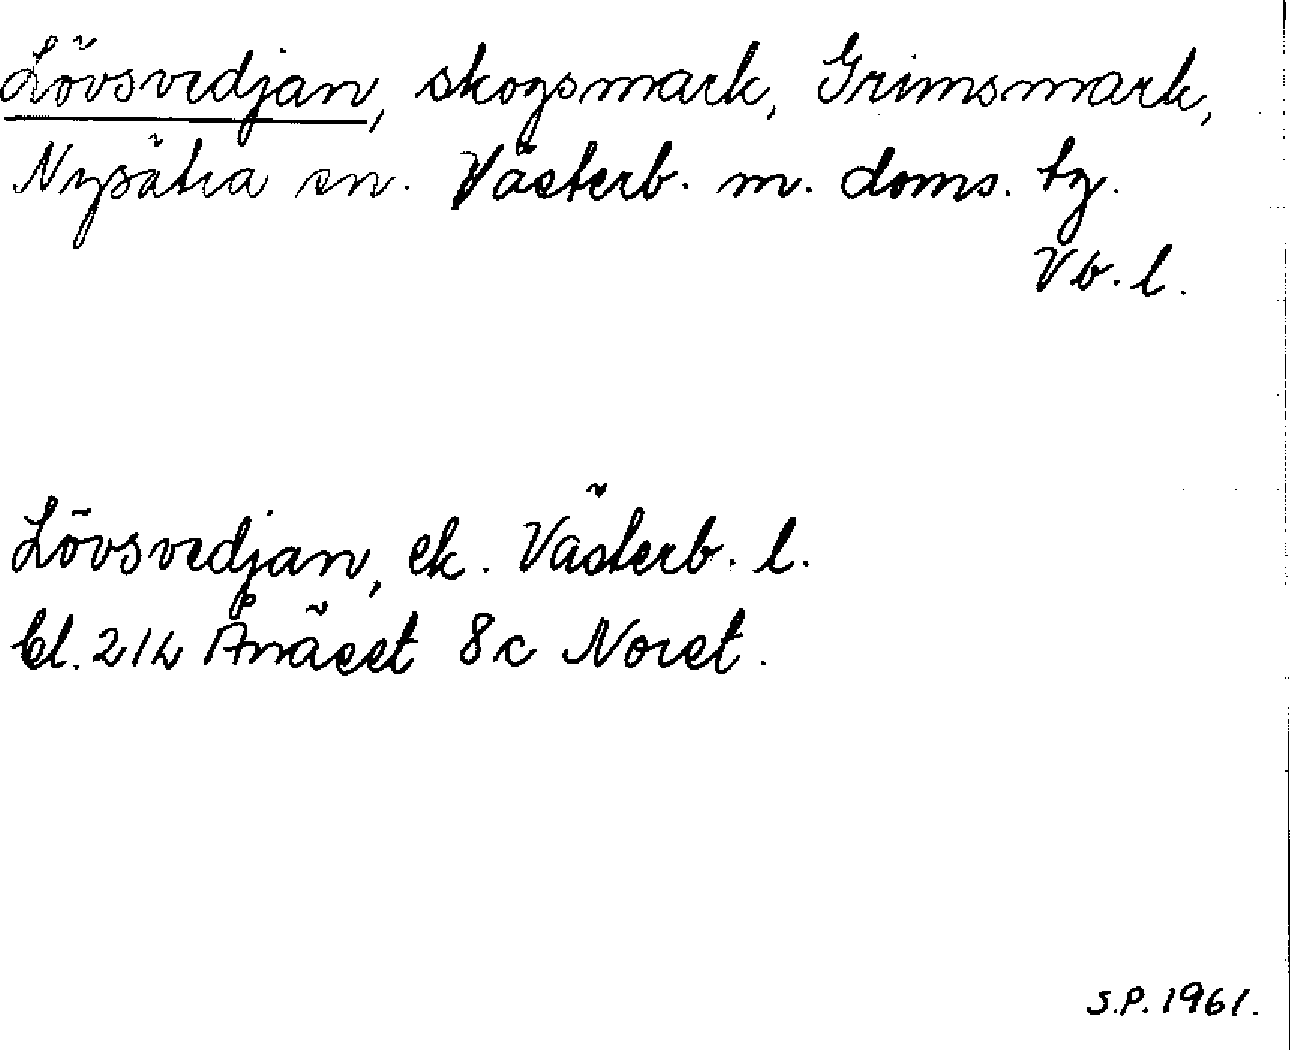 Lövsvedjan, skogsmark, Grimsmark,
Nysätra sn. Västerb. m. doms. tg.
Vb. l.
Lövsvedjan, ek. Västerb. l.
bl. 214 Ånäset 8c Noret.
S.P. 1961.